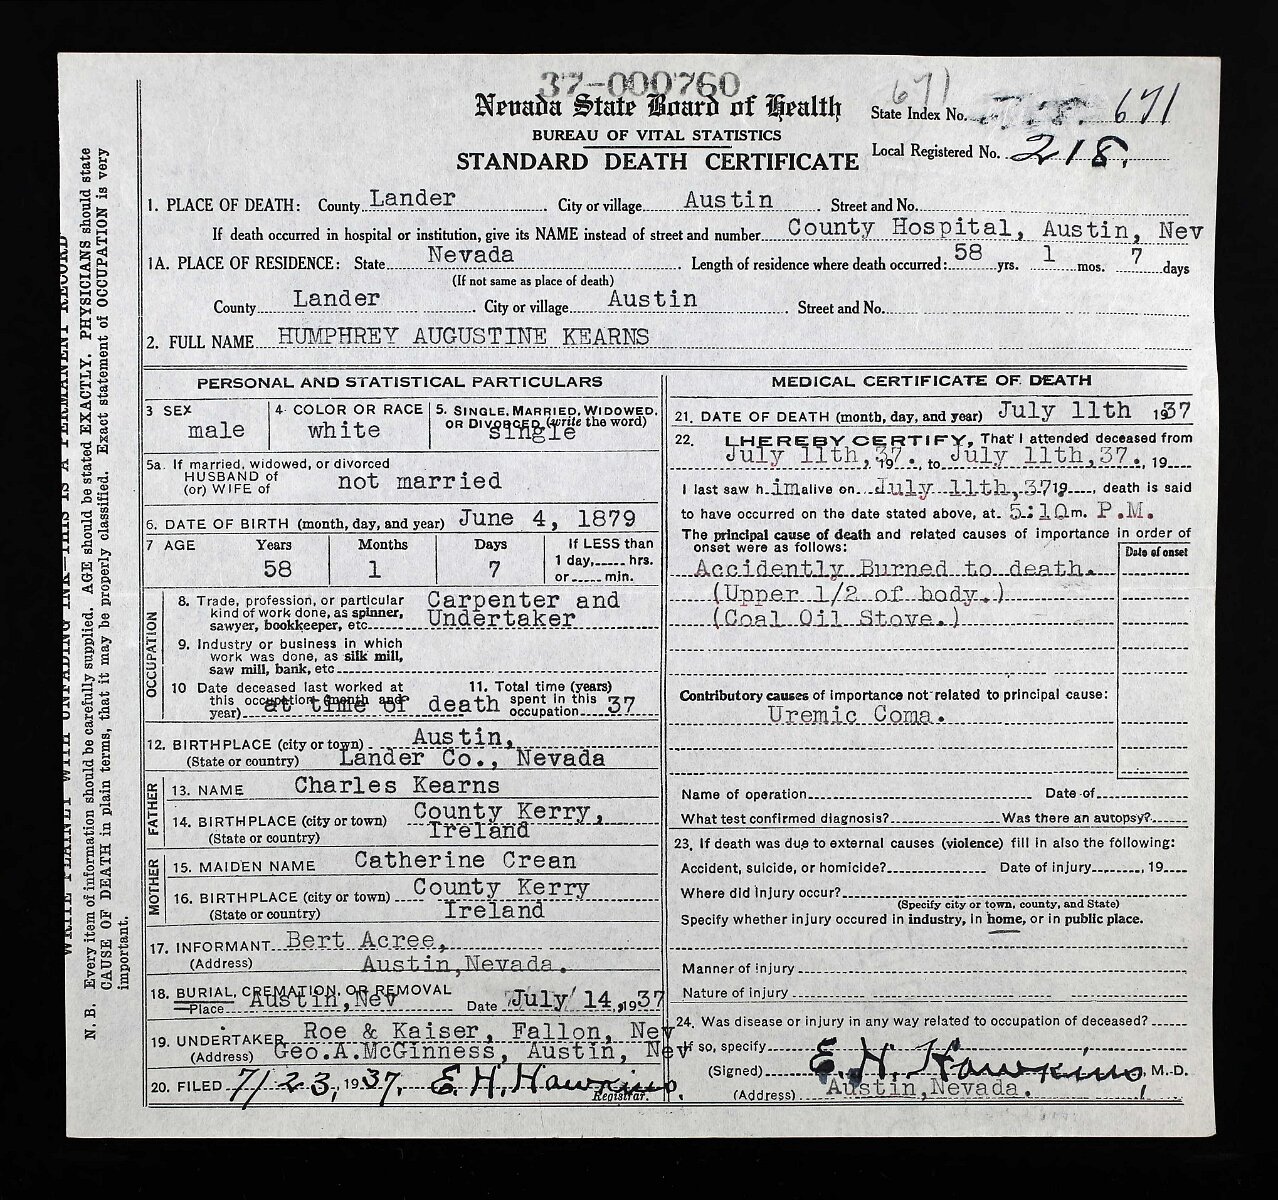 37-000760
Nevada State Board of Health
BUREAU OF VITAL STATISTICS
STANDARD DEATH CERTIFICATE
671
State Index No. 671
Local Registered No. 218.
1. PLACE OF DEATH: County Lander City or village Austin Street and No.
If death occurred in hospital or institution, give its NAME instead of street and number County Hospital, Austin, Nev
1A. PLACE OF RESIDENCE: State Nevada Length of residence where death occurred: 58 yrs. 1 mos. 7 days
(If not same as place of death)
County Lander City or village Austin Street and No.
2. FULL NAME HUMPHREY AUGUSTINE KEARNS
PERSONAL AND STATISTICAL PARTICULARS
3 SEX male
4. COLOR OR RACE white
5. SINGLE, MARRIED, WIDOWED, OR DIVORCED (write the word) single
5a. If married, widowed, or divorced
HUSBAND of
(or) WIFE of not married
6. DATE OF BIRTH (month, day, and year) June 4, 1879
7 AGE Years 58 Months 1 Days 7 If LESS than 1 day, hrs. or min.
OCCUPATION
8. Trade, profession, or particular kind of work done, as spinner, sawyer, bookkeeper, etc. Carpenter and Undertaker
9. Industry or business in which work was done, as silk mill, saw mill, bank, etc
10 Date deceased last worked at this occupation (month and year) at time of death
11. Total time (years) spent in this occupation 37
12. BIRTHPLACE (city or town) Austin,
(State or country) Lander Co., Nevada
FATHER
13. NAME Charles Kearns
14. BIRTHPLACE (city or town) County Kerry,
(State or country) Ireland
MOTHER
15. MAIDEN NAME Catherine Crean
16. BIRTHPLACE (city or town) County Kerry
(State or country) Ireland
17. INFORMANT Bert Acree,
(Address) Austin,Nevada.
18. BURIAL, CREMATION, OR REMOVAL
Place Austin,Nev Date July 14, 1937
19. UNDERTAKER Roe & Kaiser, Fallon, Nev
(Address) Geo.A.McGinness, Austin, Nev
20. FILED 7/23, 1937. E.H.Hawkins.
Registrar.
MEDICAL CERTIFICATE OF DEATH
21. DATE OF DEATH (month, day, and year) July 11th 1937
22. I HEREBY CERTIFY, That I attended deceased from
July 11th, 37. 19 , to July 11th,37., 19
I last saw h im alive on July 11th,37 19 , death is said
to have occurred on the date stated above, at 5:10 m. P.M.
The principal cause of death and related causes of importance in order of
onset were as follows:
Date of onset
Accidently Burned to death.
(Upper 1/2 of body.)
(Coal Oil Stove.)
Contributory causes of importance not related to principal cause:
Uremic Coma.
Name of operation Date of
What test confirmed diagnosis? Was there an autopsy?
23. If death was due to external causes (violence) fill in also the following:
Accident, suicide, or homicide? Date of injury , 19
Where did injury occur?
(Specify city or town, county, and State)
Specify whether injury occured in industry, in home, or in public place.
Manner of injury
Nature of injury
24. Was disease or injury in any way related to occupation of deceased?
If so, specify
(Signed) E. H. Hawkins, M.D.
(Address) Austin,Nevada.
WRITE PLAINLY WITH UNFADING INK—THIS IS A PERMANENT RECORD
N. B. Every item of information should be carefully supplied. AGE should be stated EXACTLY. PHYSICIANS should state
CAUSE OF DEATH in plain terms, that it may be properly classified. Exact statement of OCCUPATION is very
important.